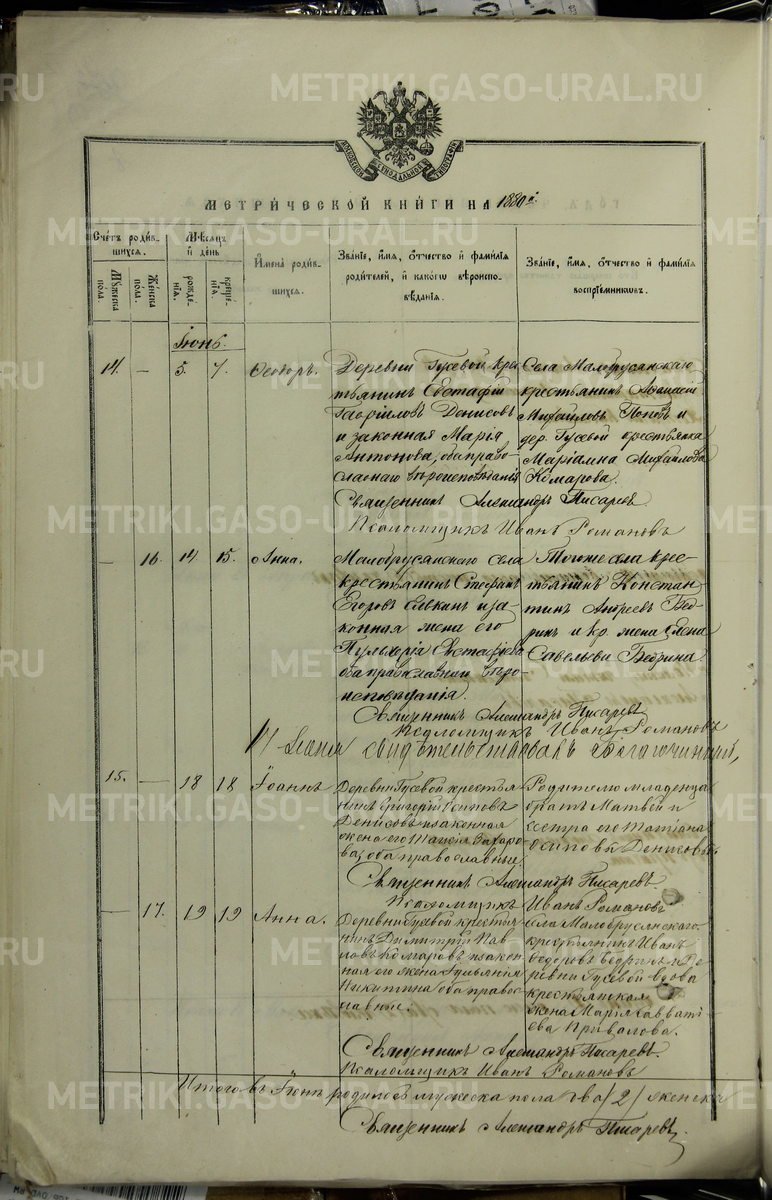 METRIKI.GASO-URAL.RU
МЕТРИ́ЧЕСКОЙ КНИ́ГИ НА 1880й
Счётъ роди́в-
шихся.
Мѣ́сяцъ
и день
Мꙋ́жеска
пола.
Же́нска
пола.
рожде́-
нїѧ.
креще́-
нїѧ.
Имена̀ роди́в-
шихся.
Зва́нїе, и́мѧ, о́тчество и фами́лїѧ
роди́телей, и како́гѡ вѣроиспо-
вѣ́данїѧ.
Зва́нїе, и́мѧ, о́тчество и фами́лїѧ
воспрїе́мникѡвъ.
Іюнь.
14. — 5. 7. Ѳеодоръ.
Деревни Гусевой кре-
стьянинъ Евстафій
Гавріиловъ Денисовъ
и законная Марія
Антонова, оба право-
славнаго вѣроисповѣданія
Села Малобрусянскаго
крестьянинъ Аѳанасій
Михайловъ Поповъ и
дер. Гусевой крестьянка
Маріамна Михайлова
Комарова.
Священникъ Александръ Писаревъ.
Псаломщикъ Иванъ Романовъ
— 16. 14. 15. Анна.
Малобрусянскаго села
крестьянинъ Стефанъ
Егоровъ Евкинъ и за-
конная жена его
Пульхерія Евстафіева
оба православнаго вѣро-
исповѣданія.
Тогоже села крес-
тьянинъ Констан-
тинъ Андреевъ Бед-
ринъ и кр. жена Елена
Савельева Бедрина.
Священникъ Александръ Писаревъ
Псаломщикъ Иванъ Романовъ
свидѣтельствовалъ благочинный,
15. — 18 18 Іоаннъ
Деревни Гусевой крестья-
нинъ Григорій Осиповъ
Денисовъ и законная
жена его Таисія Захаро-
ва, оба православные.
Родителю младенца
братъ Матвей и
сестра его Татіана
Осиповы Денисовы.
Священникъ Александръ Писаревъ.
Псаломщикъ Иванъ Романовъ
— 17. 19 19 Анна.
Деревни Гусевой крестья-
нинъ Димитрій Пав-
ловъ Комаровъ и закон-
ная его жена Гульянія
Никитина оба право-
славные.
Села Малобрусянскаго
крестьянинъ Иванъ
Ѳедоровъ Бедринъ и Де-
ревни Гусевой вдова
крестьянская
жена Марія Савватѣ-
ева Привалова.
Священникъ Александръ Писаревъ.
Псаломщикъ Иванъ Романовъ
Итого въ Іюнѣ родилось мужеска пола два /2/ женска
Священникъ Александръ Писаревъ.